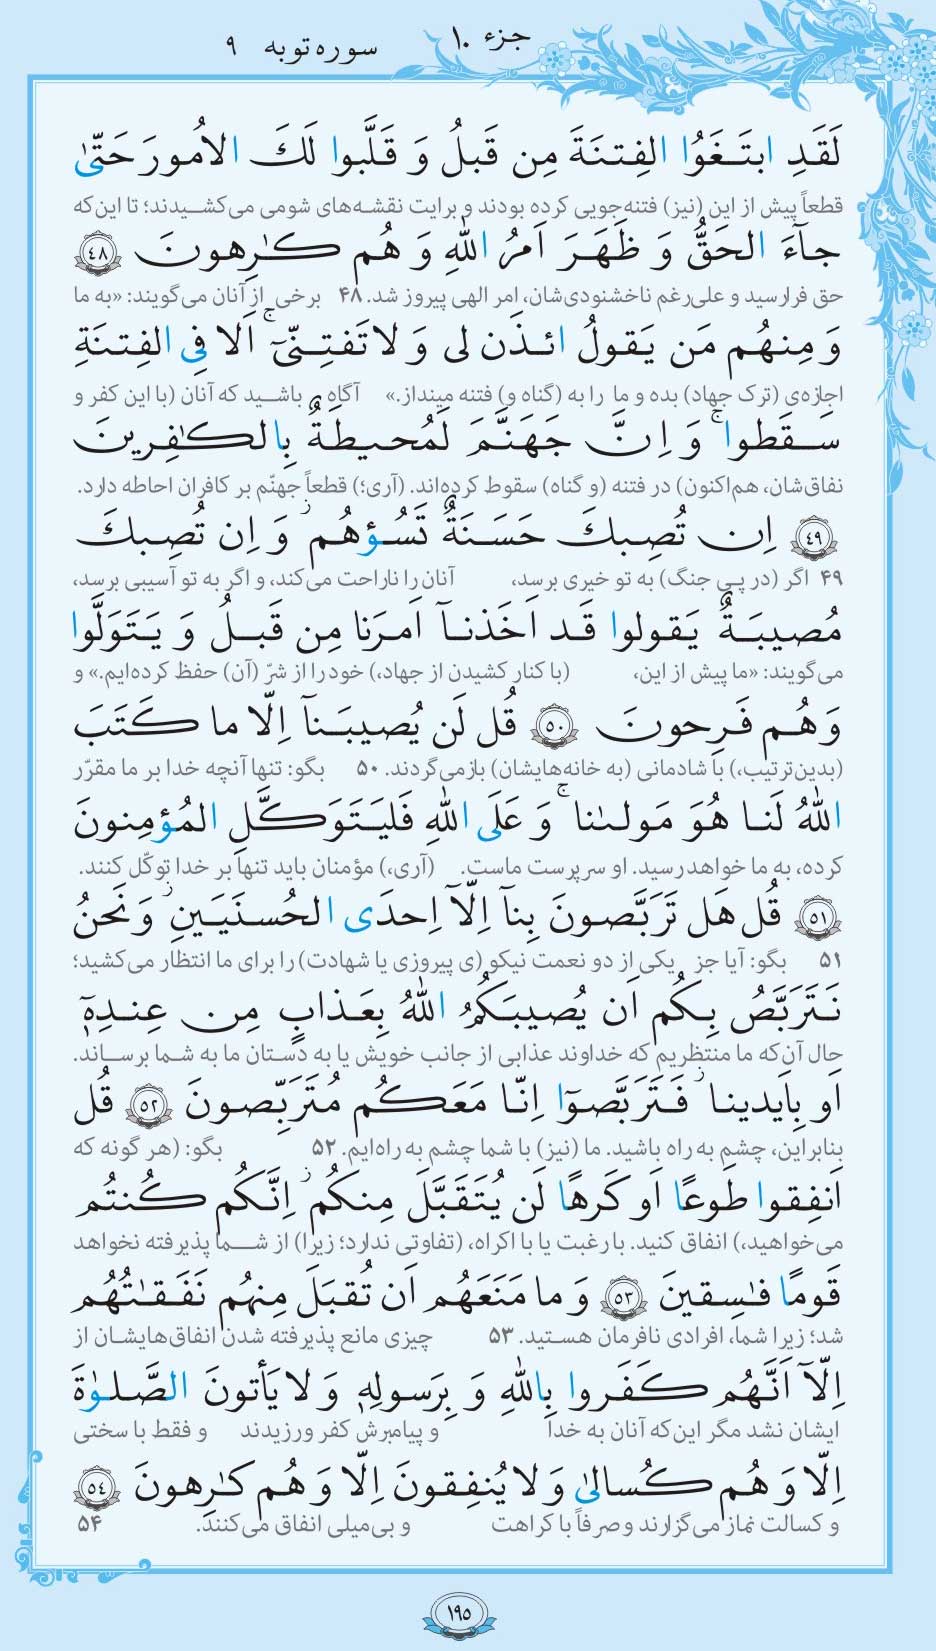 جزء ۱۰
سوره توبه ۹
لَقَدِ ابتَـغَوُا الفِتنَةَ مِن قَبلُ وَ قَلَّبوا لَكَ الاُمورَ حَتّىٰ
قطعاً پیش از این (نیز) فتنه‌جویی کرده بودند و برایت نقشه‌های شومی می‌کشیدند؛ تا این‌که
جآءَ الحَقُّ وَ ظَهَرَ اَمرُ اللهِ وَ هُم كـٰرِهونَ ﴿٤٨﴾
حق فرارسید و علی‌رغم ناخشنودی‌شان، امر الهی پیروز شد. ۴۸ برخی از آنان می‌گویند: «به ما
وَ مِنهُم مَن يَقولُ ائذَن لى وَ لا تَفتِنّىۤ ۚ اَلا فِى الفِتنَةِ
اجازه‌ی (ترک جهاد) بده و ما را به (گناه و) فتنه مینداز.» آگاه باشید که آنان (با این کفر و
سَقَطوا ۗ وَ اِنَّ جَهَنَّمَ لَمُحيطَةٌ بِالكـٰفِرينَ
نفاق‌شان، هم‌اکنون) در فتنه (و گناه) سقوط کرده‌اند. (آری؛) قطعاً جهنّم بر کافران احاطه دارد.
﴿٤٩﴾ اِن تُصِبكَ حَسَنَةٌ تَسُؤهُم ۖ وَ اِن تُصِبكَ
۴۹ اگر (در پی جنگ) به تو خیری برسد، آنان را ناراحت می‌کند، و اگر به تو آسیبی برسد،
مُصيبَةٌ يَقولوا قَد اَخَذنـاۤ اَمرَنا مِن قَبلُ وَ يَتَوَلَّوا
می‌گویند: «ما پیش از این، (با کنار کشیدن از جهاد،) خود را از شرّ (آن) حفظ کرده‌ایم.» و
وَ هُم فَرِحونَ ﴿٥٠﴾ قُل لَن يُصيبَنـاۤ اِلّا ما كَتَبَ
(بدین‌ترتیب،) با شادمانی (به خانه‌هایشان) بازمی‌گردند. ۵۰ بگو: تنها آنچه خدا بر ما مقرّر
اللهُ لَنا هُوَ مَولىٰنا ۚ وَ عَلَى اللهِ فَليَتَوَكَّلِ المُؤمِنونَ
کرده، به ما خواهد رسید. او سرپرست ماست. (آری،) مؤمنان باید تنها بر خدا توکّل کنند.
﴿٥١﴾ قُل هَل تَرَبَّصونَ بِنـاۤ اِلّاۤ اِحدَى الحُسنَيَينِ ۖ وَ نَحنُ
۵۱ بگو: آیا جز یکی از دو نعمت نیکو (ی پیروزی یا شهادت) را برای ما انتظار می‌کشید؛
نَتَرَبَّصُ بِكُم اَن يُصيبَكُمُ اللهُ بِعَذابٍ مِن عِندِهۤ
حال آن‌که ما منتظریم که خداوند عذابی از جانب خویش یا به دستان ما به شما برساند.
اَو بِاَيدينا ۖ فَتَرَبَّصوۤا اِنّا مَعَكُم مُتَرَبِّصونَ ﴿٥٢﴾ قُل
بنابراین، چشم به راه باشید. ما (نیز) با شما چشم به راه‌ایم. ۵۲ بگو: (هر گونه که
اَنفِقوا طَوعًا اَو كَرهًا لَن يُتَقَبَّلَ مِنكُم ۖ اِنَّكُم كُنتُم
می‌خواهید،) انفاق کنید. با رغبت یا با اکراه، (تفاوتی ندارد؛ زیرا) از شما پذیرفته نخواهد
قَومًا فـٰسِقينَ ﴿٥٣﴾ وَ ما مَنَعَهُم اَن تُقبَلَ مِنهُم نَفَقـٰتُهُم
شد؛ زیرا شما، افرادی نافرمان هستید. ۵۳ چیزی مانع پذیرفته شدن انفاق‌هایشان از
اِلّاۤ اَنَّهُم كَفَروا بِاللهِ وَ بِرَسولِهٖ وَ لا يَأتونَ الصَّلوٰةَ
ایشان نشد مگر این‌که آنان به خدا و پیامبرش کفر ورزیدند و فقط با سختی
اِلّا وَ هُم كُسالىٰ وَ لا يُنفِقونَ اِلّا وَ هُم كـٰرِهونَ ﴿٥٤﴾
و کسالت نماز می‌گزارند و صرفاً با کراهت و بی‌میلی انفاق می‌کنند. ۵۴
۱۹۵